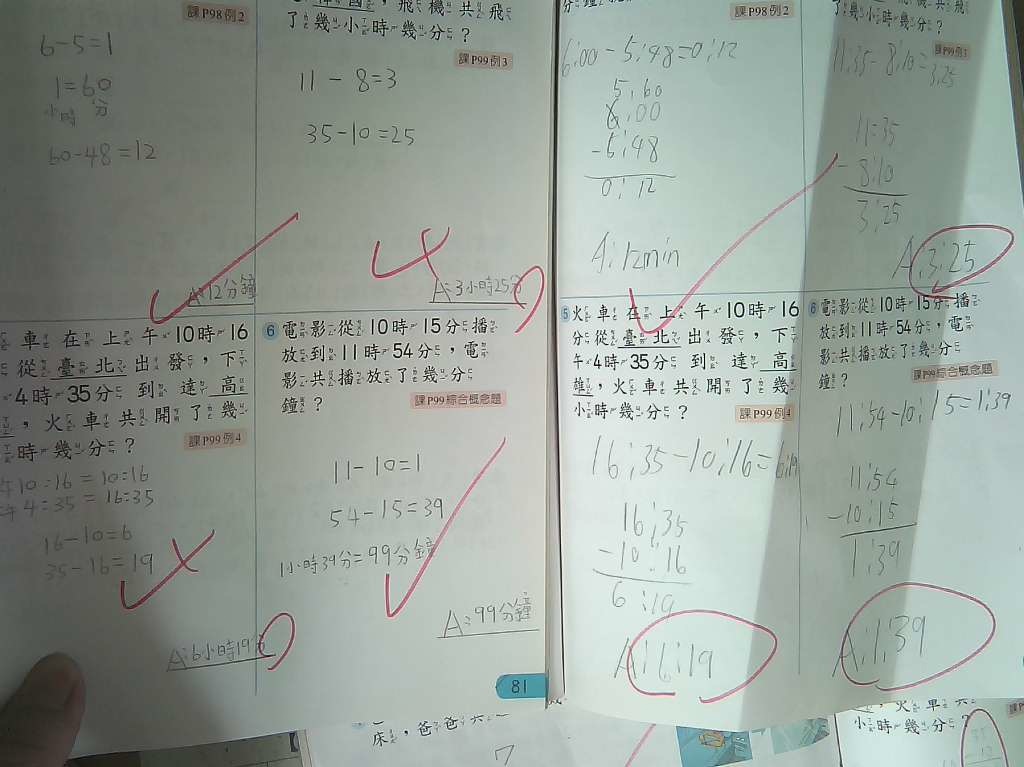 課P98例2
6-5=1
1=60
小時 分
60-48=12
A:12分鐘
飛機共飛
了幾小時幾分?
課P99例3
11-8=3
35-10=25
A:3小時25分
車在上午10時16
從臺北出發,下
4時35分到達高
,火車共開了幾
時幾分?
課P99例4
10:16=10:16
4:35=16:35
16-10=6
35-16=19
A:6小時19分
6 電影從10時15分播
放到11時54分,電
影共播放了幾分
鐘?
課P99綜合概念題
11-10=1
54-15=39
1小時39分=99分鐘
A:99分鐘
81
課P98例2
6:00-5:48=0:12
5:60
6:00
-5:48
0:12
A:12min
了幾小時幾分?
課P99例3
11:35-8:10=3:25
11:35
-8:10
3:25
A:3:25
5 火車在上午10時16
分從臺北出發,下
午4時35分到達高
雄,火車共開了幾
小時幾分?
課P99例4
16:35-10:16=6:19
16:35
-10:16
6:19
A:6:19
6 電影從10時15分播
放到11時54分,電
影共播放了幾分
鐘?
課P99綜合概念題
11:54-10:15=1:39
11:54
-10:15
1:39
A:1:39
床,爸爸共
7
火車共
小時幾分?